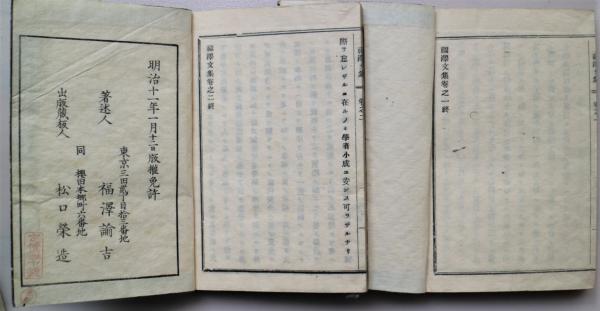 福澤文集卷之一終
福澤文集
際ヲ忘レザルニ在ルノミ學者小成ニ安ンズ可ラザルナリ
福澤文集卷之二終
明治十一年一月十二日版權免許
著述人
東京三田貳丁目拾三番地
福澤諭吉
出版蔵板人
同
櫻田本郷町六番地
松口榮造